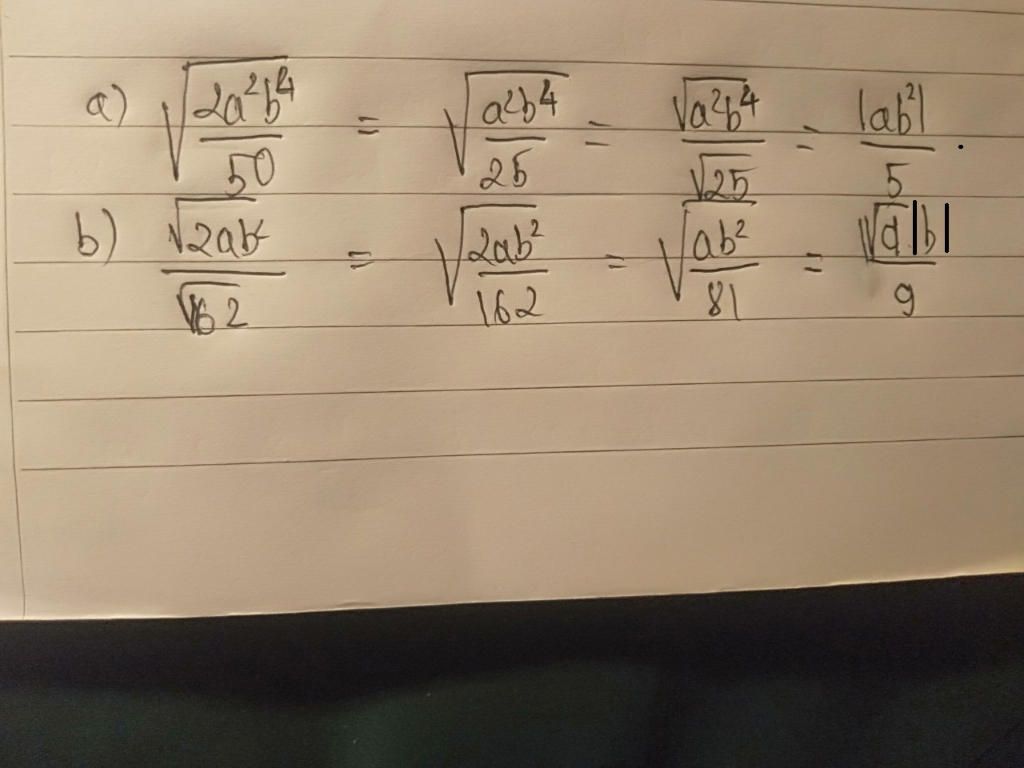 a) √(2a²b⁴/50) = √(a²b⁴/25) = √(a²b⁴)/√25 = |ab²|/5 .
b) √(2ab²)/√162 = √(2ab²/162) = √(ab²/81) = √a|b|/9